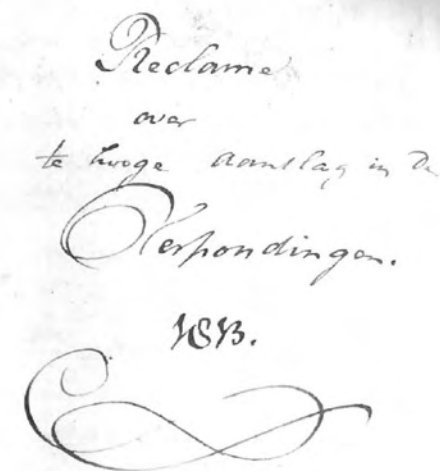 Reclame
over
te hooge aanslag in de
Verpondingen.
1813.